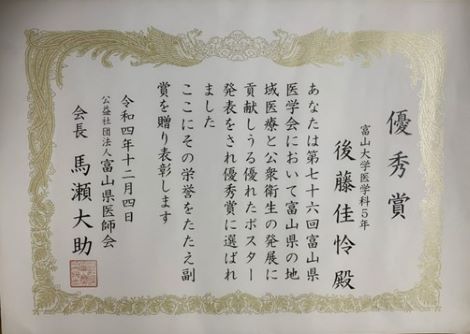 優秀賞
富山大学医学科5年
後藤佳怜殿
あなたは第七十六回富山県
医学会において富山県の地
域医療と公衆衛生の発展に
貢献しうる優れたポスター
発表をされ優秀賞に選ばれ
ました
ここにその栄誉をたたえ副
賞を贈り表彰します
令和四年十二月四日
公益社団法人富山県医師会
会長 馬瀬大助